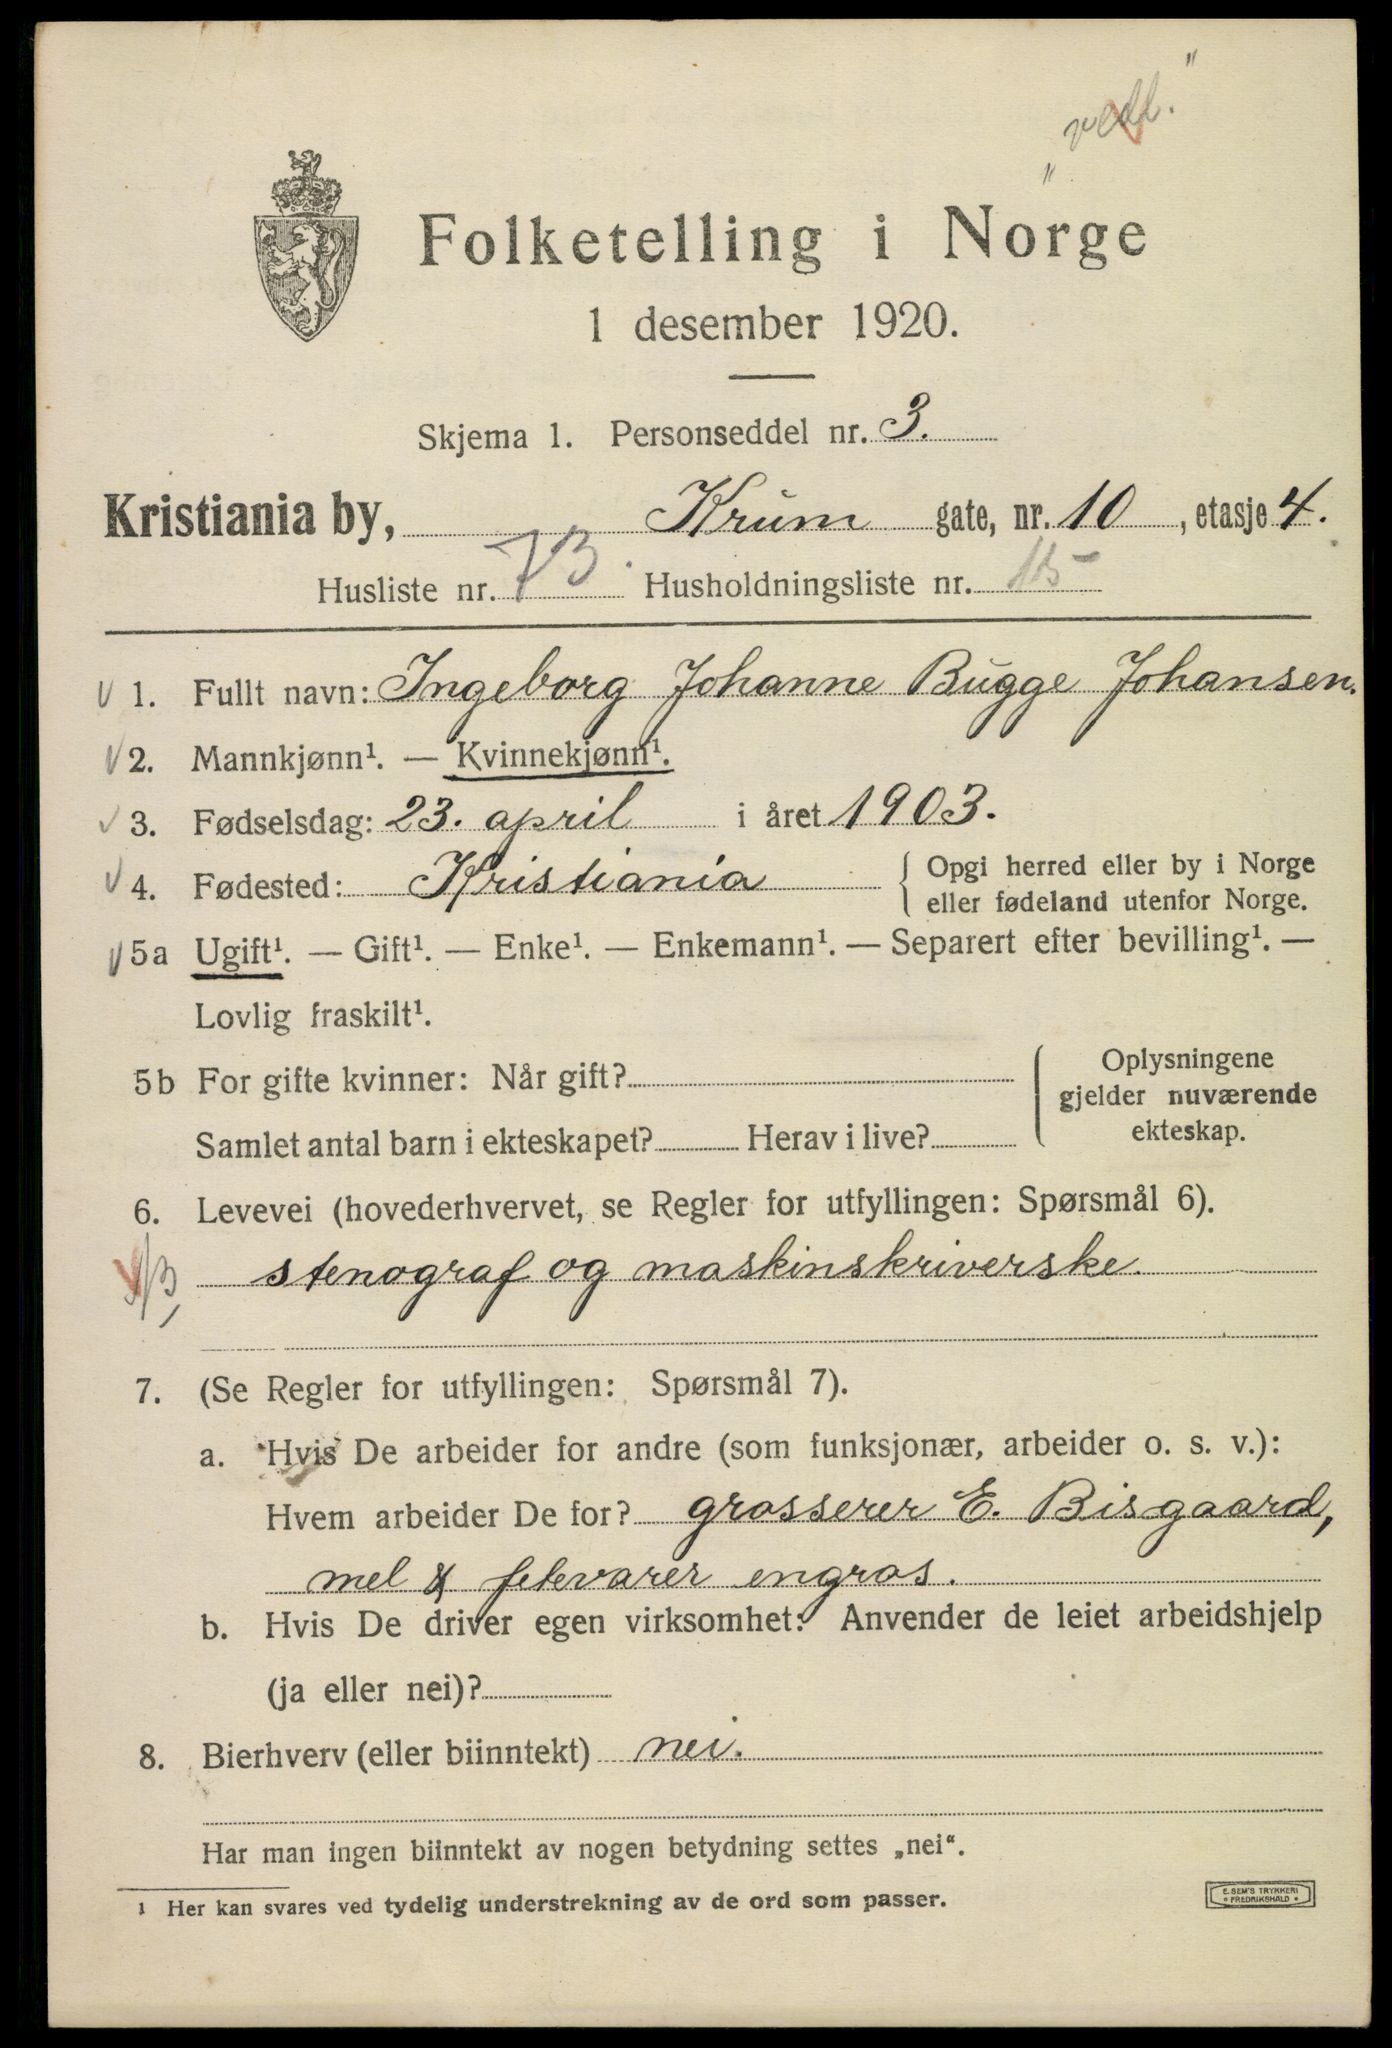 „ vedl. "
Folketelling i Norge
1 desember 1920.
Skjema 1. Personseddel nr. 3.
Kristiania by, Krum gate, nr. 10, etasje 4.
Husliste nr. 73. Husholdningsliste nr. 15
1. Fullt navn: Ingeborg Johanne Bugge Johansen.
2. Mannkjønn¹. — Kvinnekjønn¹.
3. Fødselsdag: 23. april i året 1903.
4. Fødested: Kristiania { Opgi herred eller by i Norge
eller fødeland utenfor Norge.
5a Ugift¹. — Gift¹. — Enke¹. — Enkemann¹. — Separert efter bevilling¹. —
Lovlig fraskilt¹.
5b For gifte kvinner: Når gift? { Oplysningene
gjelder nuværende
Samlet antal barn i ekteskapet? Herav i live? ekteskap.
6. Levevei (hovederhvervet, se Regler for utfyllingen: Spørsmål 6).
stenograf og maskinskriverske.
7. (Se Regler for utfyllingen: Spørsmål 7).
a. Hvis De arbeider for andre (som funksjonær, arbeider o. s. v.):
Hvem arbeider De for? grosserer E. Bisgaard,
mel & fetevarer engros.
b. Hvis De driver egen virksomhet: Anvender de leiet arbeidshjelp
(ja eller nei)?
8. Bierhverv (eller biinntekt) nei.
Har man ingen biinntekt av nogen betydning settes „nei“.
¹ Her kan svares ved tydelig understrekning av de ord som passer.
E. SEM'S TRYKKERI
* FREDRIKSHALD *